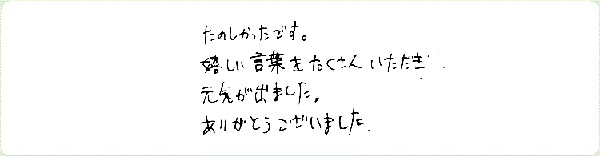 たのしかったです。
嬉しい言葉をたくさんいただき
元気が出ました。
ありがとうございました